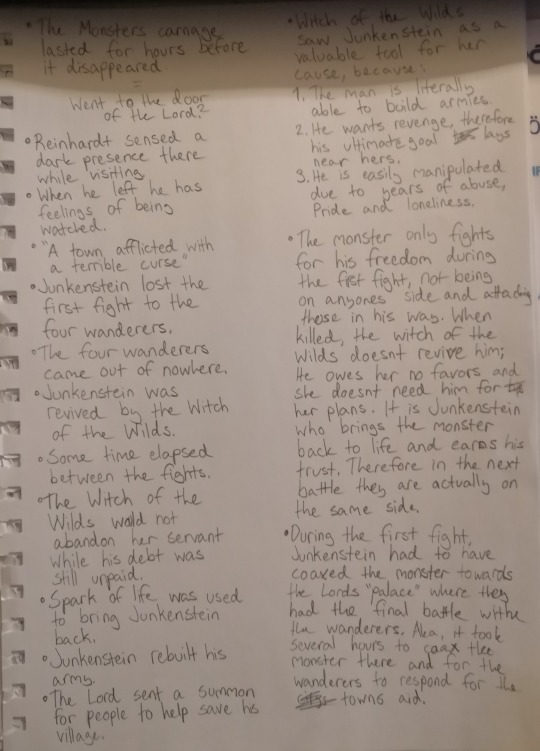 • The Monsters carnage
lasted for hours before
it disappeared
=
Went to the door
of the Lord?
• Reinhardt sensed a
dark presence there
while visiting.
• When he left he has
feelings of being
watched.
• "A town afflicted with
a terrible curse"
• Junkenstein lost the
first fight to the
four wanderers.
• The four wanderers
came out of nowhere.
• Junkenstein was
revived by the Witch
of the Wilds.
• Some time elapsed
between the fights.
• The Witch of the
Wilds would not
abandon her servant
while his debt was
still unpaid.
• Spark of life was used
to bring Junkenstein
back.
• Junkenstein rebuilt his
army.
• The Lord sent a summon
for people to help save his
village.
• Witch of the Wilds
saw Junkenstein as a
valuable tool for her
cause, because:
1. The man is literally
able to build armies.
2. He wants revenge, therefore
his ultimate goal lays
near hers.
3. He is easily manipulated
due to years of abuse,
Pride and loneliness.
• The monster only fights
for his freedom during
the first fight, not being
on anyones side and attacking
those in his way. When
killed, the witch of the
Wilds doesnt revive him;
He owes her no favors and
she doesnt need him for
her plans. It is Junkenstein
who brings the monster
back to life and earns his
trust. Therefore in the next
battle they are actually on
the same side.
• During the first fight,
Junkenstein had to have
coaxed the monster towards
the Lords "palace" where they
had the final battle withe
the wanderers. Aka, it took
several hours to coax the
monster there and for the
wanderers to respond for the
towns aid.